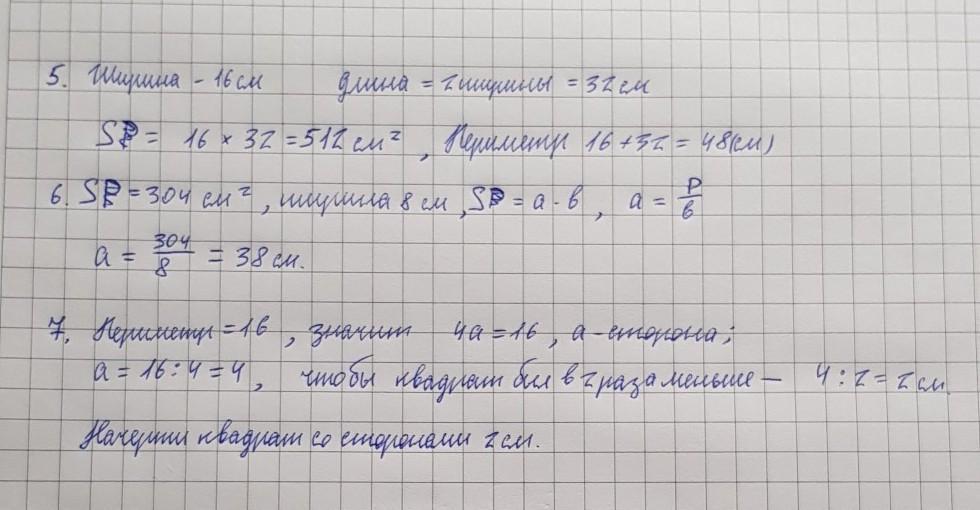 5. Ширина - 16 см длина = 2 ширины = 32 см
S = 16 × 32 = 512 см² , Периметр 16 + 32 = 48(см)
6. S = 304 см² , ширина 8 см , S = a · b , a = P/b
a = 304/8 = 38 см.
7. Периметр = 16 , значит 4a = 16 , a - сторона;
a = 16 : 4 = 4 , чтобы квадрат был в 2 раза меньше — 4 : 2 = 2 см.
Начерти квадрат со сторонами 2 см.